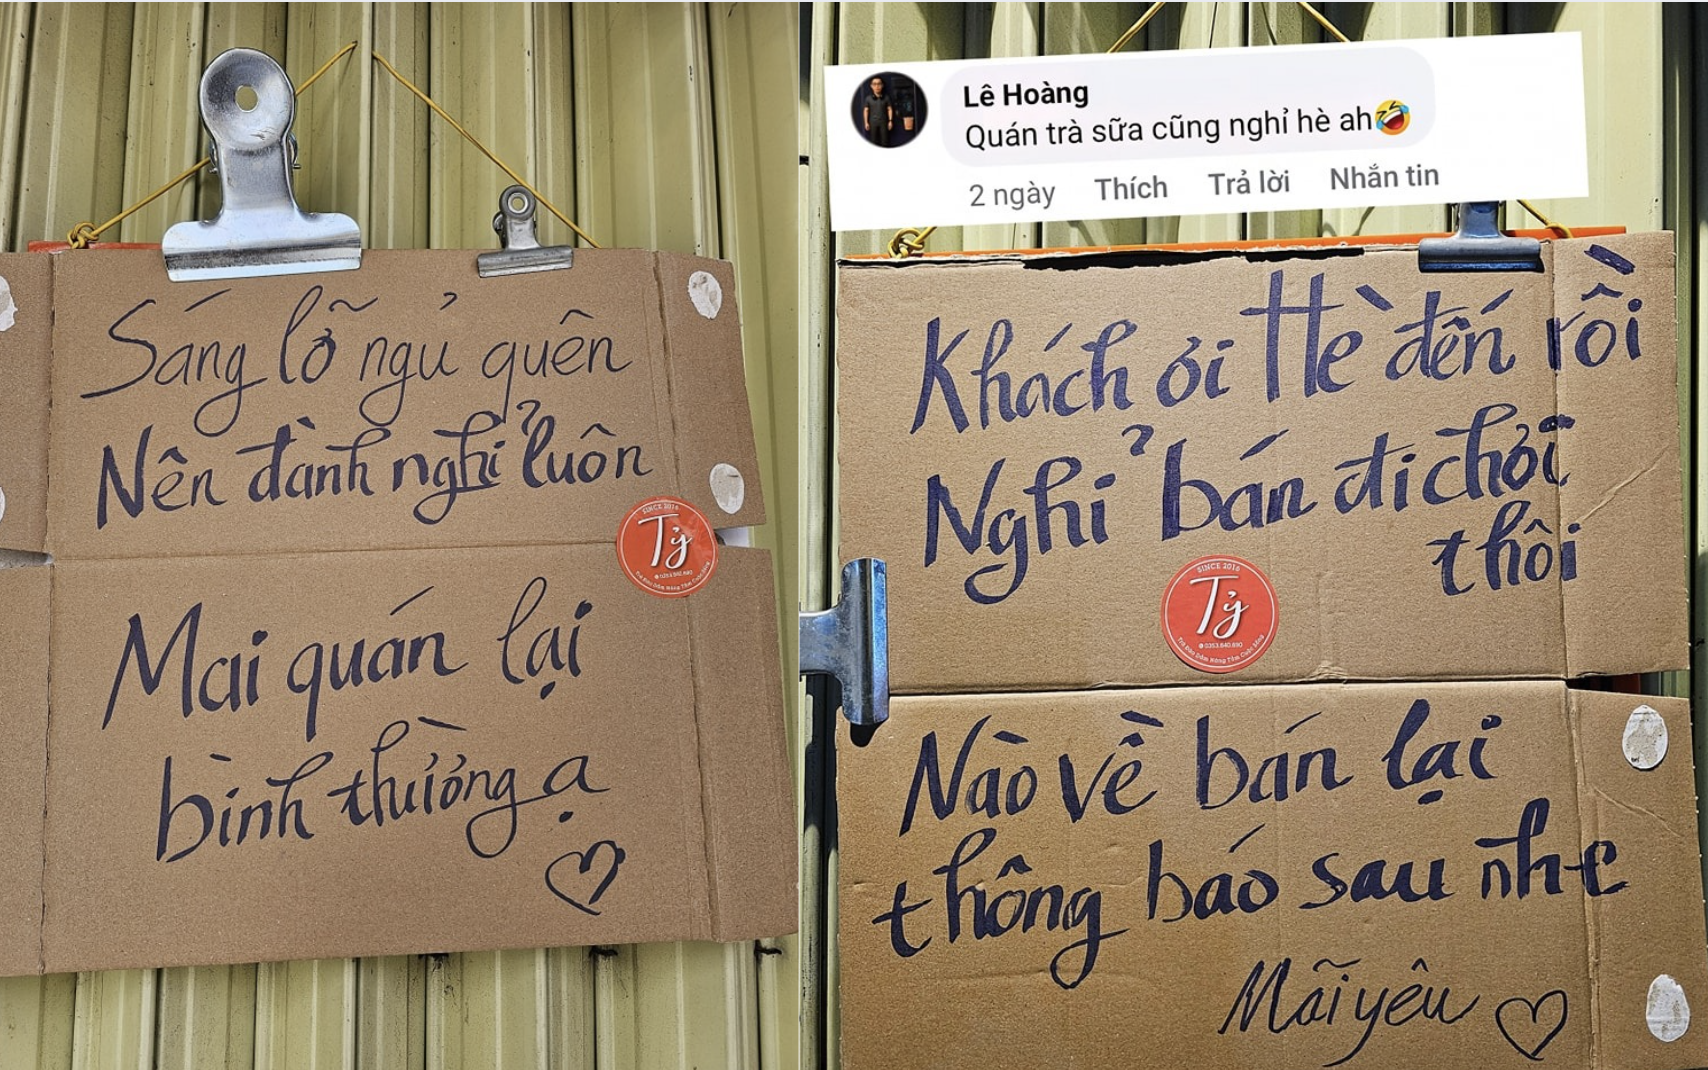 Sáng lỡ ngủ quên
Nên đành nghỉ luôn
SINCE 2016
Tỷ
Mai quán lại
bình thường ạ
Lê Hoàng
Quán trà sữa cũng nghỉ hè ah🤣
2 ngày Thích Trả lời Nhắn tin
Khách ơi Hè đến rồi
Nghỉ bán đi chơi
thôi
SINCE 2016
Tỷ
0353.840.890
Trà Đào Dầm Nóng Tôm Cuốc Sống
Nào về bán lại
thông báo sau nhe
Mãi yêu